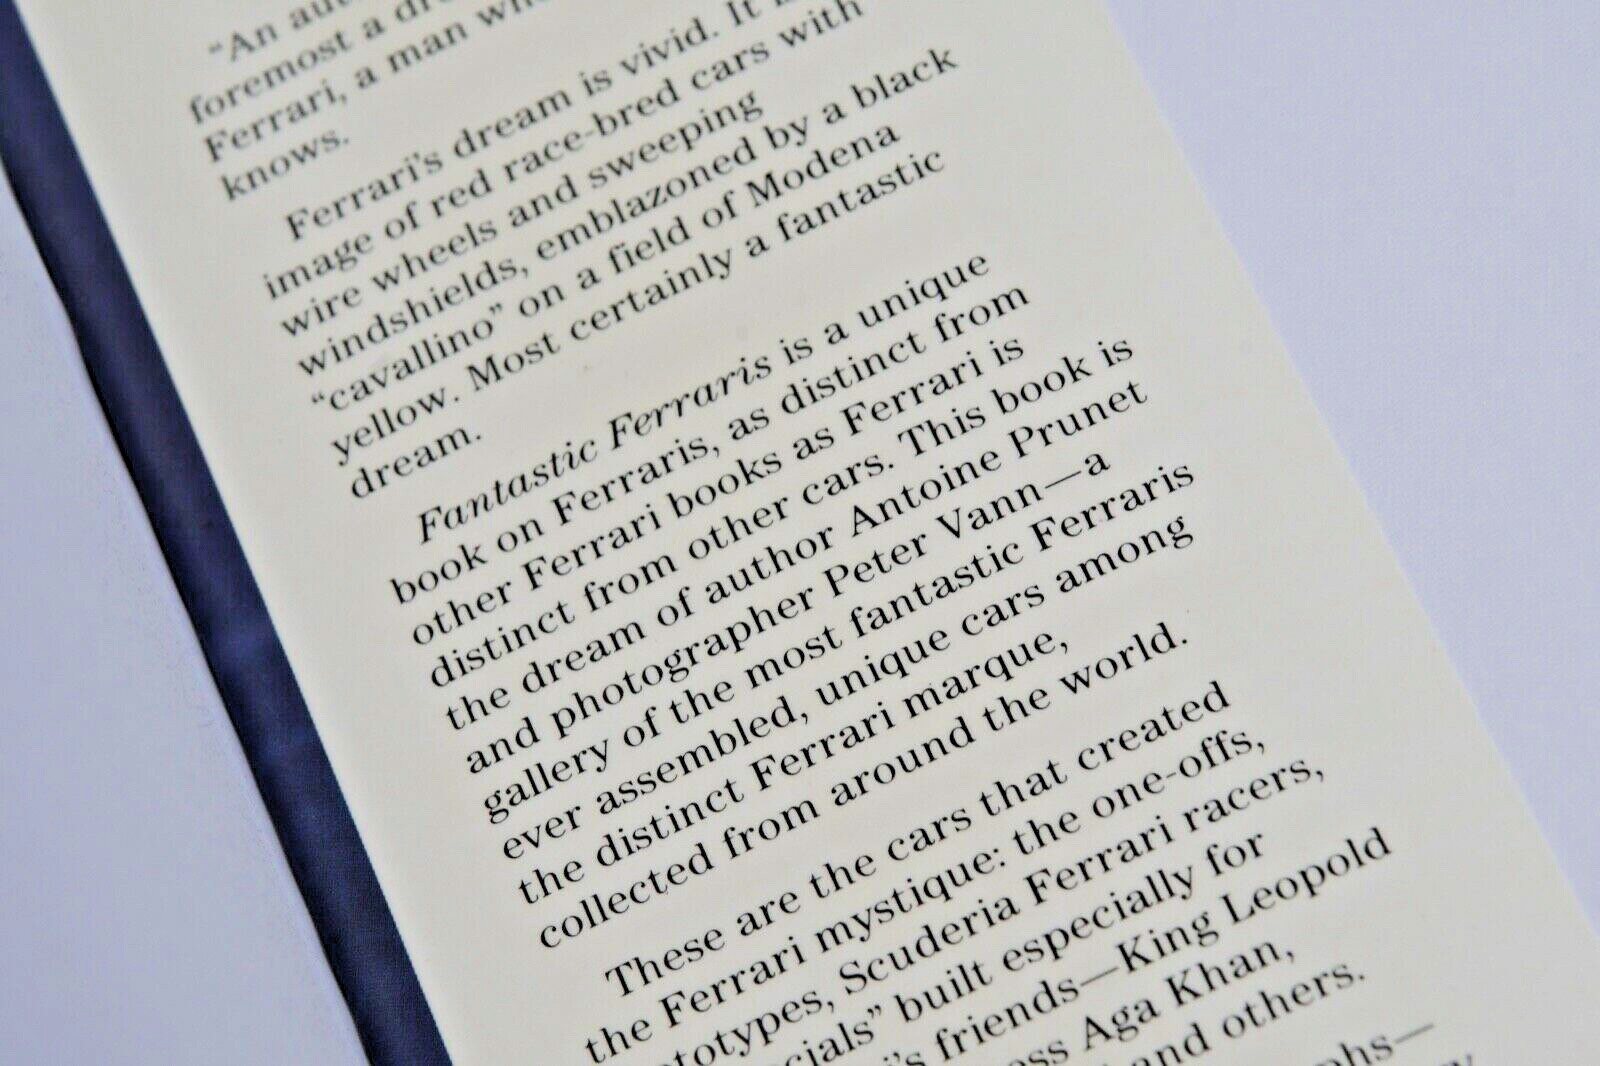 "An aut
foremost a dr
Ferrari, a man wh
knows.
Ferrari's dream is vivid. It
image of red race-bred cars with
wire wheels and sweeping
windshields, emblazoned by a black
"cavallino" on a field of Modena
yellow. Most certainly a fantastic
dream.
Fantastic Ferraris is a unique
book on Ferraris, as distinct from
other Ferrari books as Ferrari is
distinct from other cars. This book is
the dream of author Antoine Prunet
and photographer Peter Vann—a
gallery of the most fantastic Ferraris
ever assembled, unique cars among
the distinct Ferrari marque,
collected from around the world.
These are the cars that created
the Ferrari mystique: the one-offs,
totypes, Scuderia Ferrari racers,
cials" built especially for
i's friends—King Leopold
ess Aga Khan,
and others.
phs—